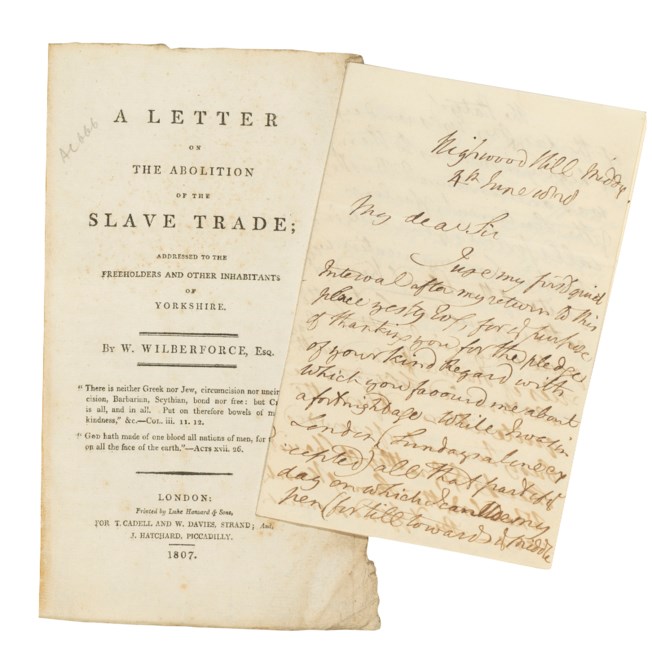 AC 666
A LETTER
ON
THE ABOLITION
OF THE
SLAVE TRADE;
ADDRESSED TO THE
FREEHOLDERS AND OTHER INHABITANTS
OF
YORKSHIRE.
By W. WILBERFORCE, Esq.
"There is neither Greek nor Jew, circumcision nor
cision, Barbarian, Scythian, bond nor free: but
is all, and in all. Put on therefore bowels of
kindness," &c.—Col. iii. 11. 12.
"God hath made of one blood all nations of men, for
on all the face of the earth."—Acts xvii. 26.
LONDON:
Printed by Luke Hansard & Sons,
FOR T. CADELL AND W. DAVIES, STRAND; And,
J. HATCHARD, PICCADILLY.
1807.
Highwood Hill Middx.
4th June
My dear Sir
I use my first quiet
Interval after my return to this
place yesty Evg, for purpose
of thanking you for the pledge
of your kind Regard with
which you favourd me about
a fortnight ago. While I was in
London (Sundays alone ex
cepted) all that part of
day on which I can use my
pen (for till towards middle